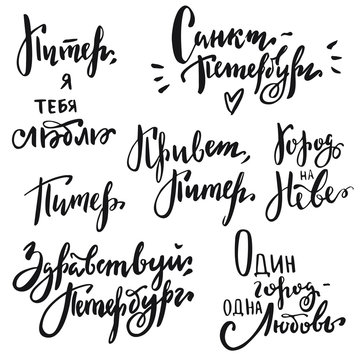 Питер,
я
тебя
люблю
Санкт-
Петербург
Питер
Привет,
Питер
Город
на
Неве
Здравствуй,
Петербург
Один
город-
одна
Любовь